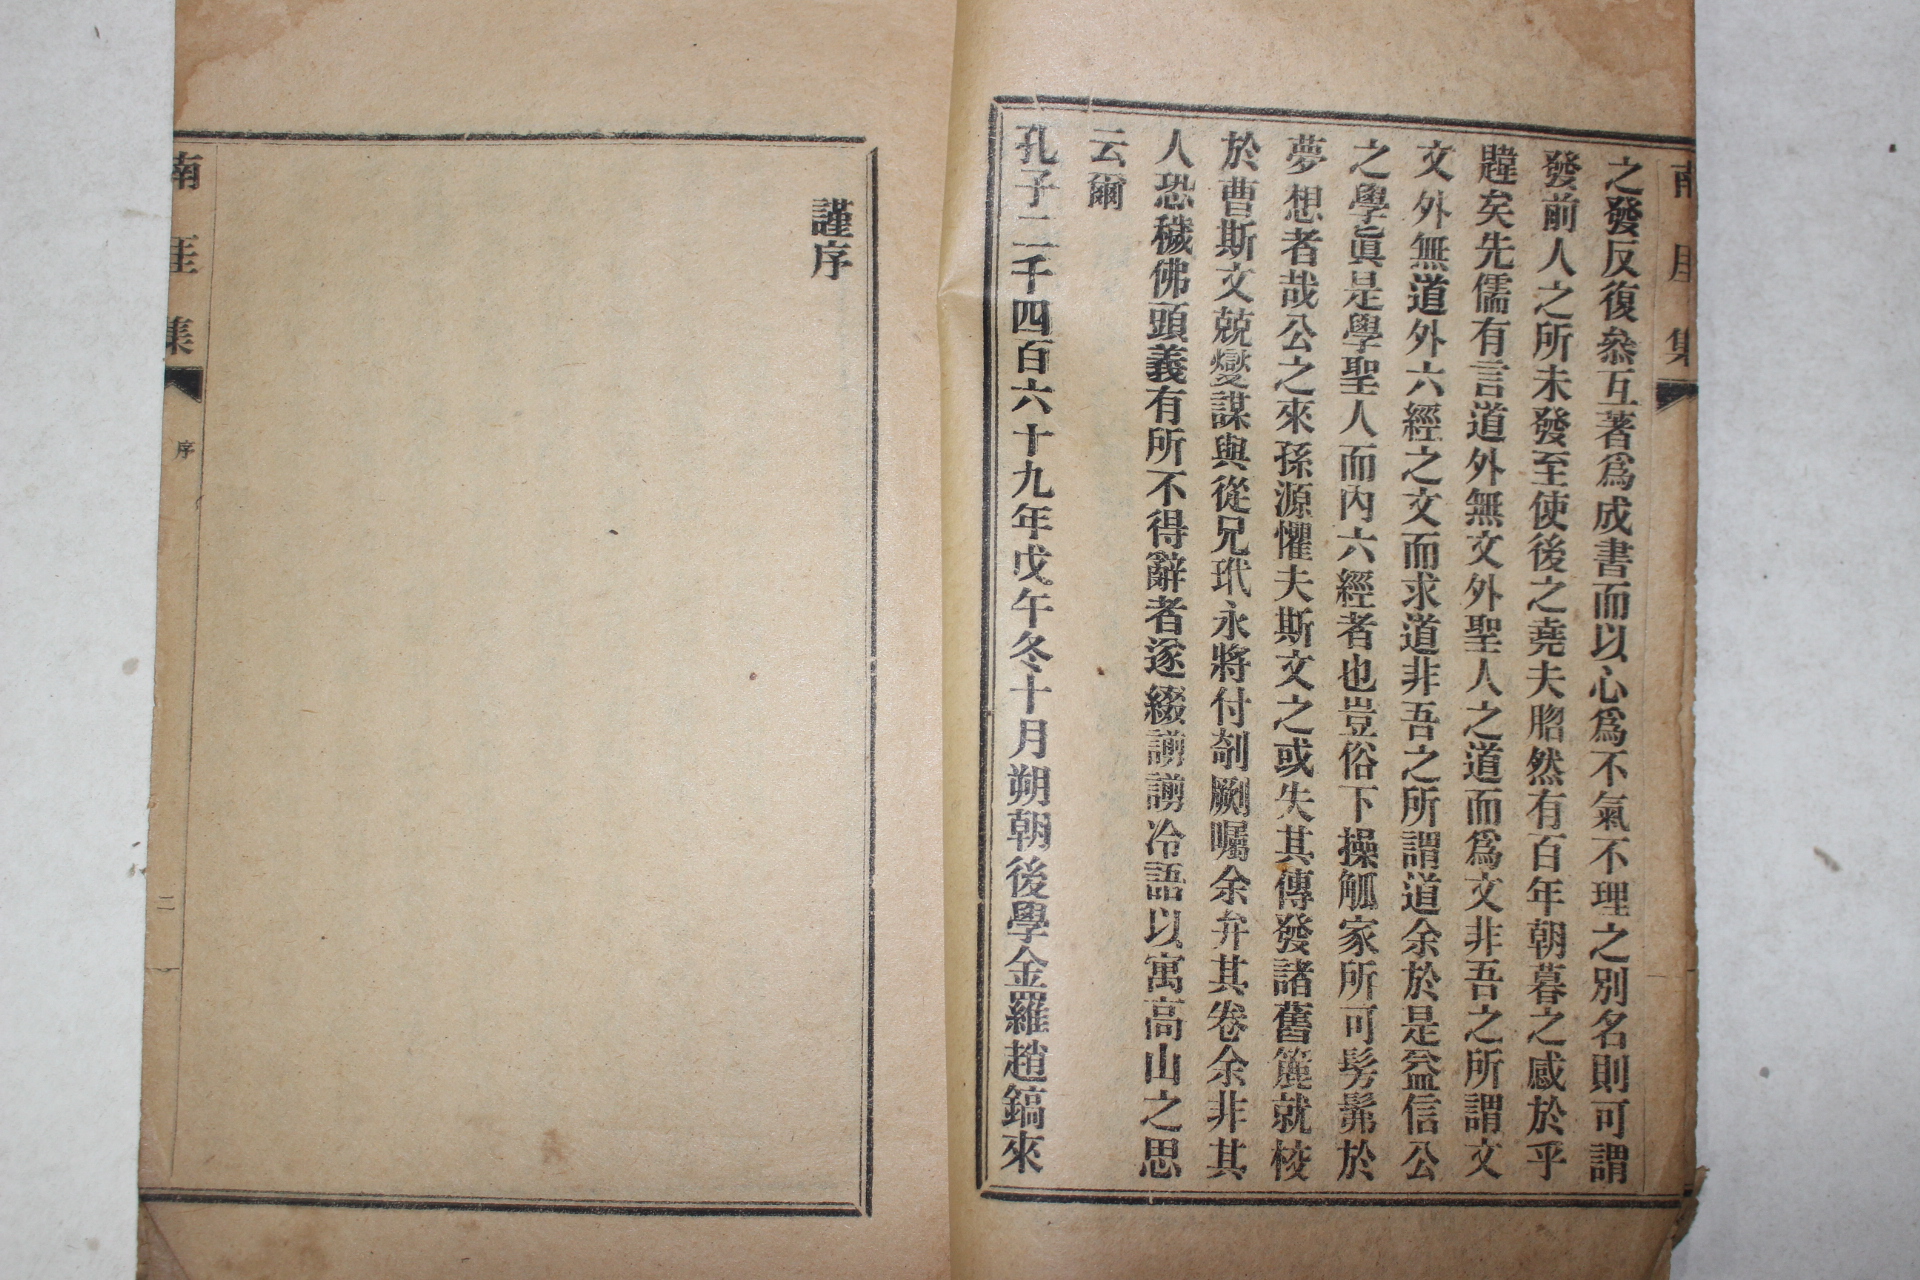 南 厓 集
之發反復叅互著爲成書而以心爲不氣不理之別名則可謂
發前人之所未發至使後之堯夫脗然有百年朝暮之感於乎
韙矣先儒有言道外無文外聖人之道而爲文非吾之所謂文
文外無道外六經之文而求道非吾之所謂道余於是益信公
之學眞是學聖人而內六經者也豈俗下操觚家所可髣髴於
夢想者哉公之來孫源懼夫斯文之或失其傳發諸舊簏就校
於曹斯文兢燮謀與從兄玳永將付剞劂囑余弁其卷余非其
人恐穢佛頭義有所不得辭者遂綴謭謭冷語以寓高山之思
云爾
孔子二千四百六十九年戊午冬十月朔朝後學金羅趙鎬來
謹序
南 厓 集
序
二